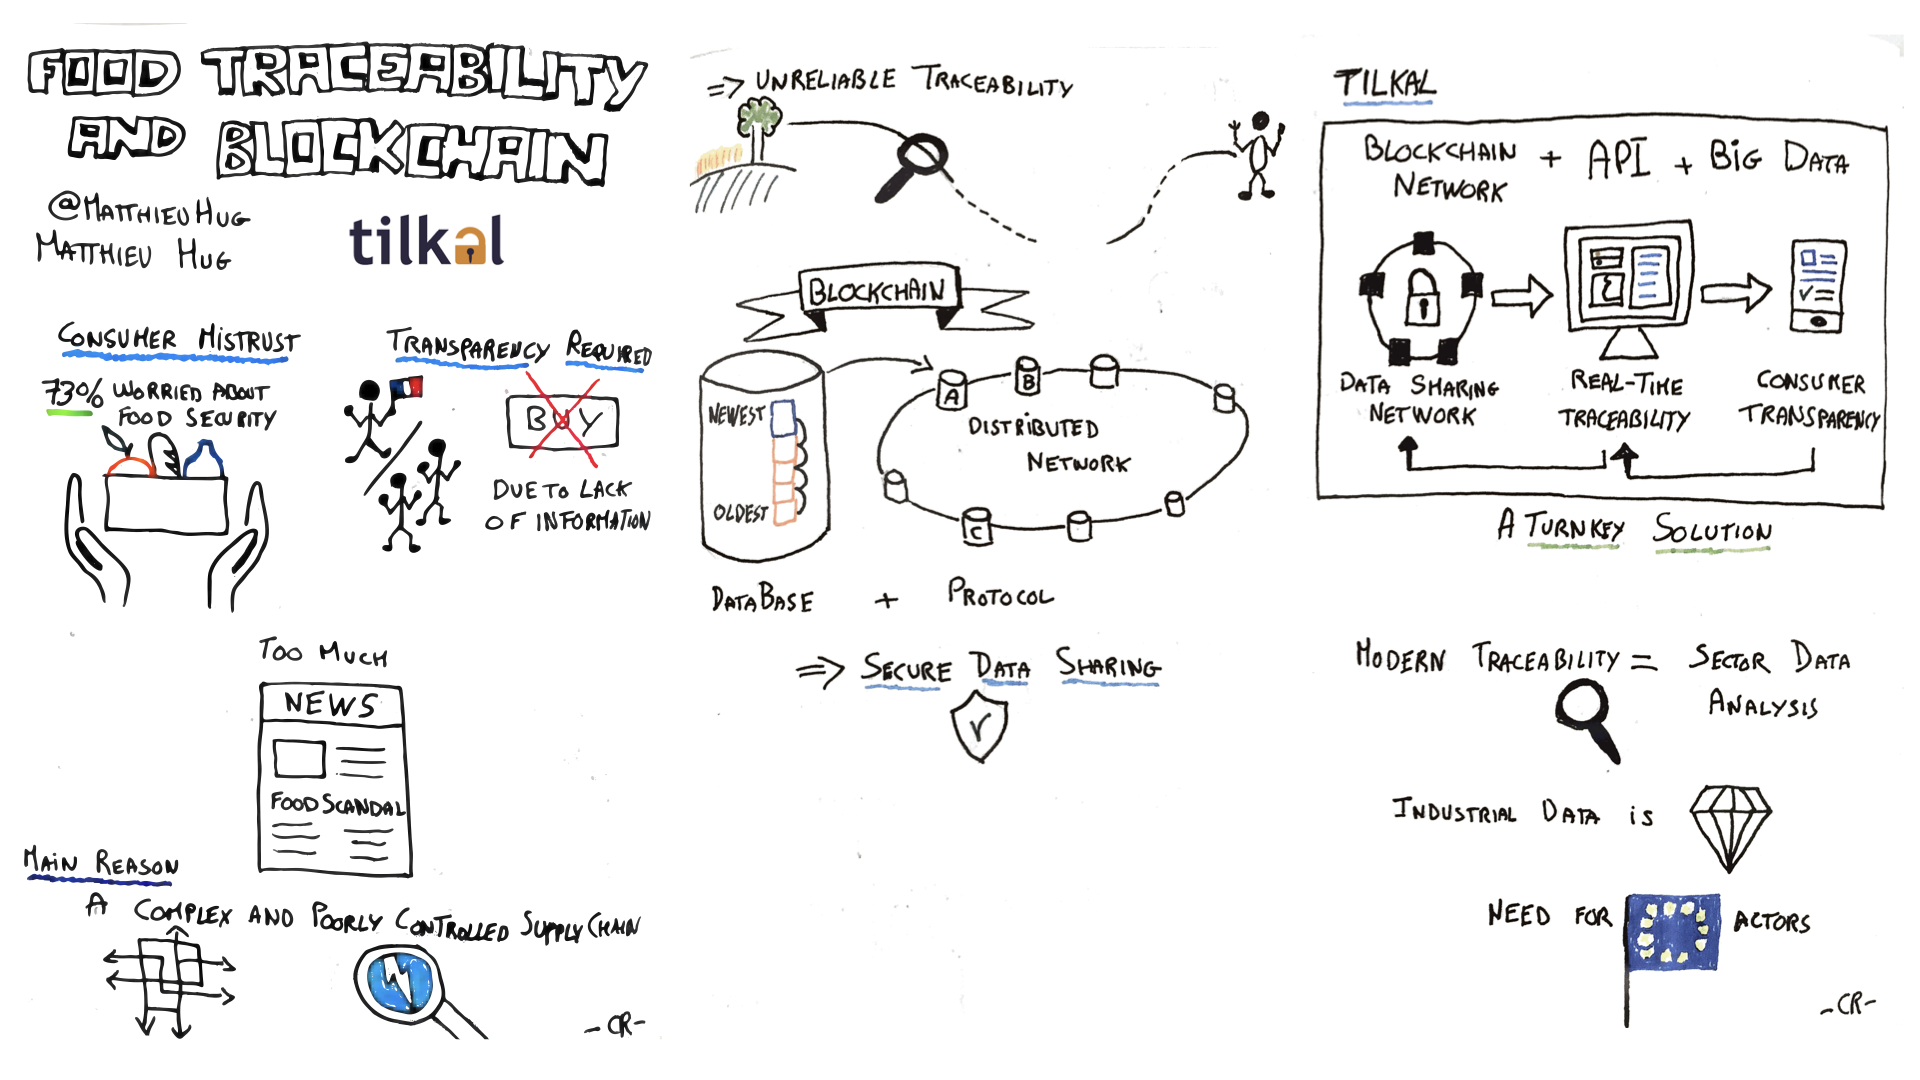 FOOD TRACEABILITY
AND BLOCKCHAIN
@MATTHIEUHUG
MATTHIEU HUG
tilkal
CONSUMER MISTRUST
73% WORRIED ABOUT
FOOD SECURITY
TRANSPARENCY REQUIRED
BUY
DUE TO LACK
OF INFORMATION
TOO MUCH
NEWS
FOOD SCANDAL
MAIN REASON
A COMPLEX AND POORLY CONTROLLED SUPPLY CHAIN
-CR-
=> UNRELIABLE TRACEABILITY
BLOCKCHAIN
NEWEST
OLDEST
A
B
C
DISTRIBUTED
NETWORK
DATABASE + PROTOCOL
=> SECURE DATA SHARING
TILKAL
BLOCKCHAIN NETWORK + API + BIG DATA
DATA SHARING
NETWORK
REAL-TIME
TRACEABILITY
CONSUMER
TRANSPARENCY
A TURNKEY SOLUTION
MODERN TRACEABILITY = SECTOR DATA
ANALYSIS
INDUSTRIAL DATA is
NEED FOR ACTORS
-CR-